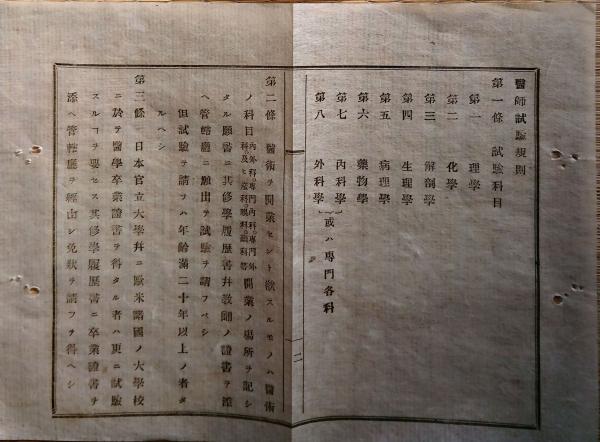 醫師試驗規則
第一條 試驗科目
第一 理學
第二 化學
第三 解剖學
第四 生理學
第五 病理學
第六 藥物學
第七 內科學
第八 外科學
或ハ專門各科
二
第二條 醫術ヲ開業セント欲スルモノハ醫術
ノ科目內外科專門內科專門外科及ヒ產科眼科齒科等開業ノ場所ヲ記シ
タル願書ニ其修學履歷書幷敎師ノ證書ヲ添
ヘ管轄廳ニ願出テ試驗ヲ請フヘシ
但試驗ヲ請フハ年齡滿二十年以上ノ者タ
ルヘシ
第三條 日本官立大學幷ニ歐米諸國ノ大學校
ニ於テ醫學卒業證書ヲ得タル者ハ更ニ試驗
スルヿヲ要セス其修學履歷書ニ卒業證書ヲ
添ヘ管轄廳ヲ經由シ免狀ヲ請フヲ得ヘシ